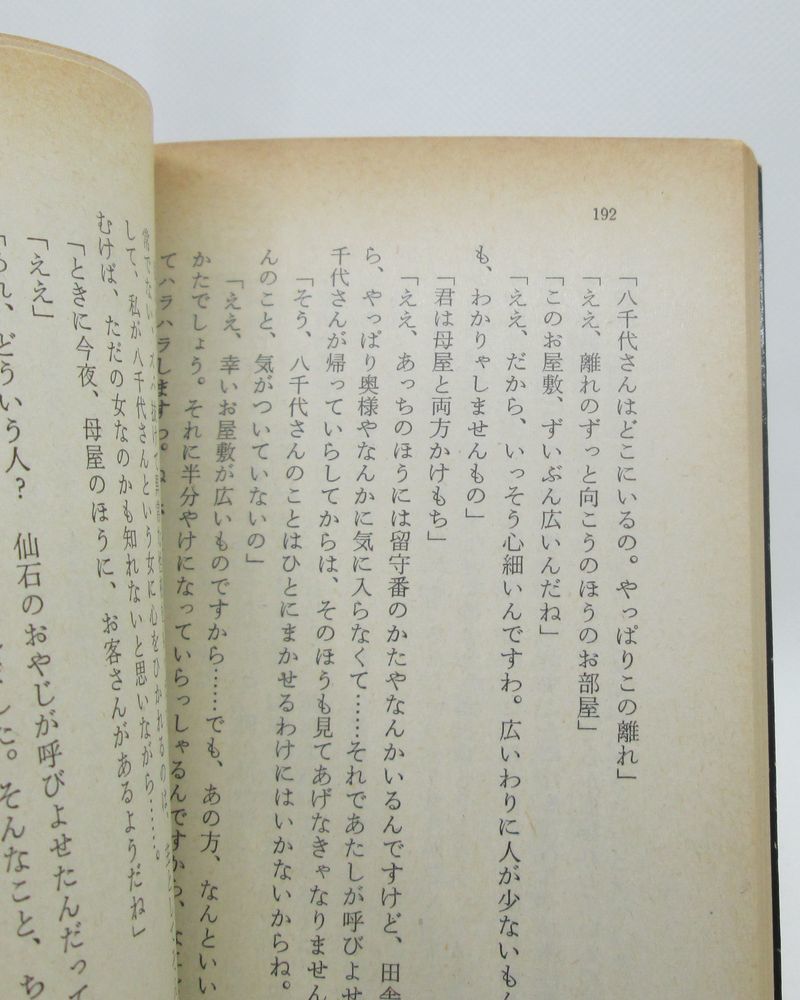 192
「八千代さんはどこにいるの。やっぱりこの離れ」
「ええ、離れのずっと向こうのほうのお部屋」
「このお屋敷、ずいぶん広いんだね」
「ええ、だから、いっそう心細いんですわ。広いわりに人が少ないもん
も、わかりゃしませんもの」
「君は母屋と両方かけもち」
「ええ、あっちのほうには留守番のかたやなんかいるんですけど、田舎
ら、やっぱり奥様やなんかに気に入らなくて……それであたしが呼びよせ
千代さんが帰っていらしてからは、そのほうも見てあげなきゃなりません
「そう、八千代さんのことはひとにまかせるわけにはいかないからね。
んのこと、気がついていないの」
「ええ、幸いお屋敷が広いものですから……でも、あの方、なんといい
かたでしょう。それに半分やけになっていらっしゃるんですから、
てハラハラしますわ。
して、私が八千代さんという女に心をひかれるのは、
むけば、ただの女なのかも知れないと思いながら……。
「ときに今夜、母屋のほうに、お客さんがあるようだね」
「ええ」
どういう人？　仙石のおやじが呼びよせたんだって
した。そんなこと、ち